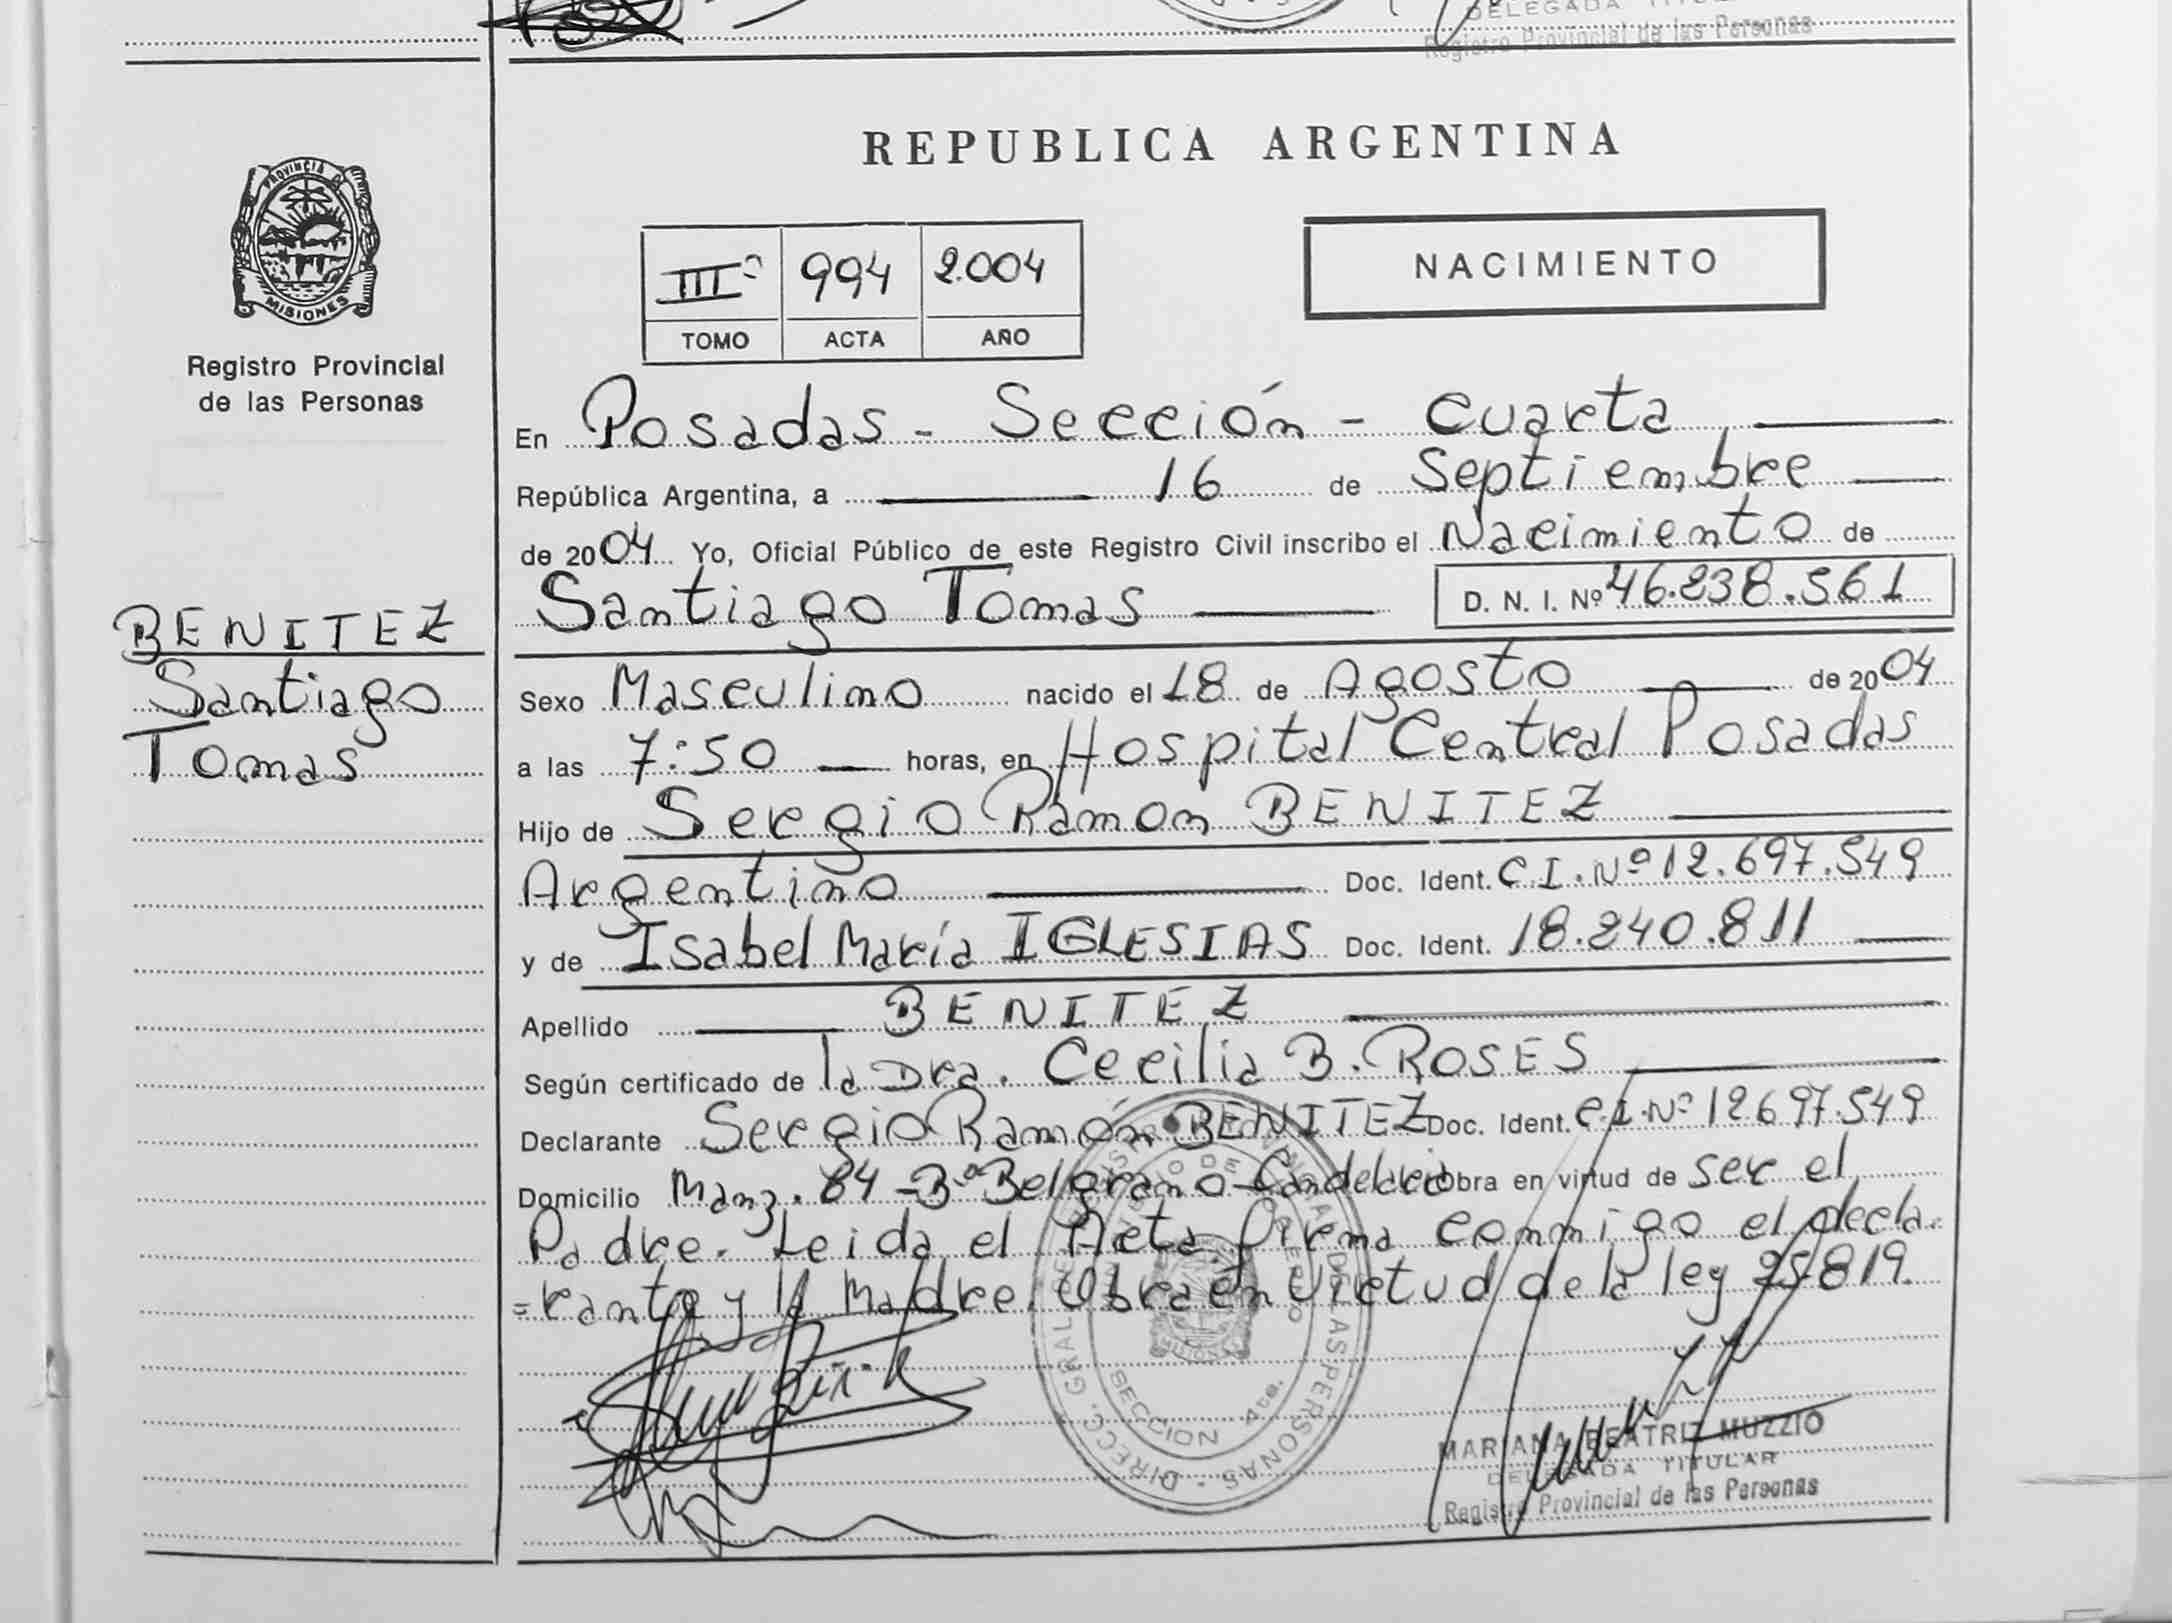 DELEGADA TITU
Registro Provincial de las Personas
PROVINCIA DE
MISIONES
Registro Provincial
de las Personas
BENITEZ
Santiago
Tomas
REPUBLICA ARGENTINA
IIIº 994 2.004
TOMO ACTA AÑO
NACIMIENTO
En Posadas - Sección - Cuarta
República Argentina, a 16 de Septiembre
de 2004 Yo, Oficial Público de este Registro Civil inscribo el Nacimiento de
Santiago Tomas D. N. I. Nº 46.238.561
Sexo Masculino nacido el 18 de Agosto de 2004
a las 7:50 horas, en Hospital Central Posadas
Hijo de Sergio Ramon BENITEZ
Argentino Doc. Ident. C.I. Nº 12.697.549
y de Isabel María IGLESIAS Doc. Ident. 18.240.811
Apellido BENITEZ
Según certificado de la Dra. Cecilia B. ROSES
Declarante Sergio Ramón BENITEZ Doc. Ident. C.I. Nº 12697.549
Domicilio Manz. 84 - Bº Belgrano - Candelaria obra en virtud de ser el
Padre. Leida el Acta firma conmigo el decla-
=rante y la Madre. Obra en Virtud de la ley 25819.
DIRECC. GRAL. DE REGISTRO PROVINCIAL DE LAS PERSONAS
MINISTERIO DE GOBIERNO
SECCION 4ta.
MARIANA BEATRIZ MUZZIO
DELEGADA TITULAR
Registro Provincial de las Personas